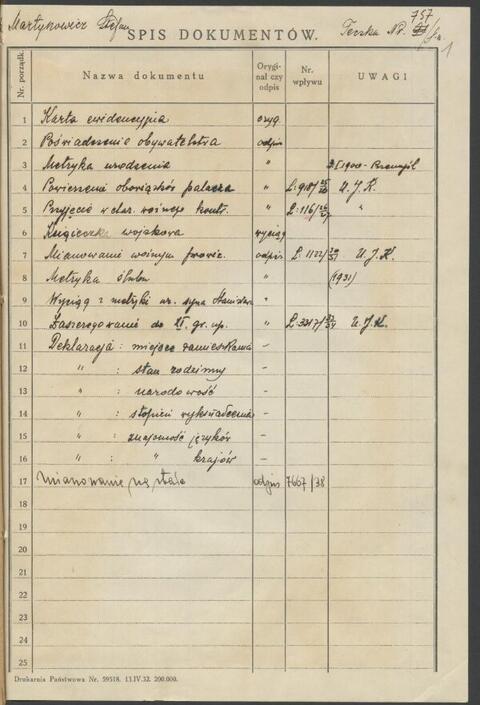 Martynowicz Stefan
SPIS DOKUMENTÓW.
Teczka Nr. 757
1
Nr. porządk. Nazwa dokumentu Orygi-nał czy odpis Nr. wpływu UWAGI
1 Karta ewidencyjna oryg
2 Poświadczenie obywatelstwa odpis
3 Metryka urodzenia " 1900 - Przemyśl
4 Powierzenie obowiązków palacza " L: 918/ U. J. K.
5 Przyjęcie w char. woźnego kontr. " L: 116/26/27 "
6 Książeczka wojskowa wyciąg
7 Mianowanie woźnym prowiz. odpis L: 1122/ U. J. K.
8 Metryka ślubu " (1931)
9 Wyciąg z metryki ur. syna Stanisława "
10 Zaszeregowanie do XI. gr. up. " L: 3317/33/34 U. J. K.
11 Deklaracja : miejsce zamieszkania -
12 " : stan rodzinny -
13 " : narodowość -
14 " : stopień wykształcenia -
15 " : znajomość języków -
16 " : " krajów -
17 Mianowanie na stałe odpis 7667/38
18
19
20
21
22
23
24
25
Drukarnia Państwowa Nr. 59518. 13.IV.32. 200.000.